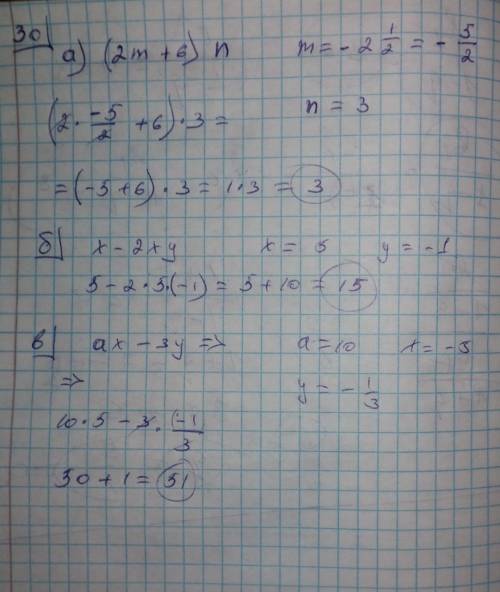 30
а) (2m + 6) n m = - 2 1/2 = - 5/2
(2 · -5/2 + 6) · 3 = n = 3
= (-5 + 6) · 3 = 1 · 3 = 3
б) x - 2xy x = 5 y = -1
5 - 2 · 5 · (-1) = 5 + 10 = 15
в) ax - 3y => a = 10 x = -5
=> y = - 1/3
10 · 5 - 3 · (-1/3
50 + 1 = 51